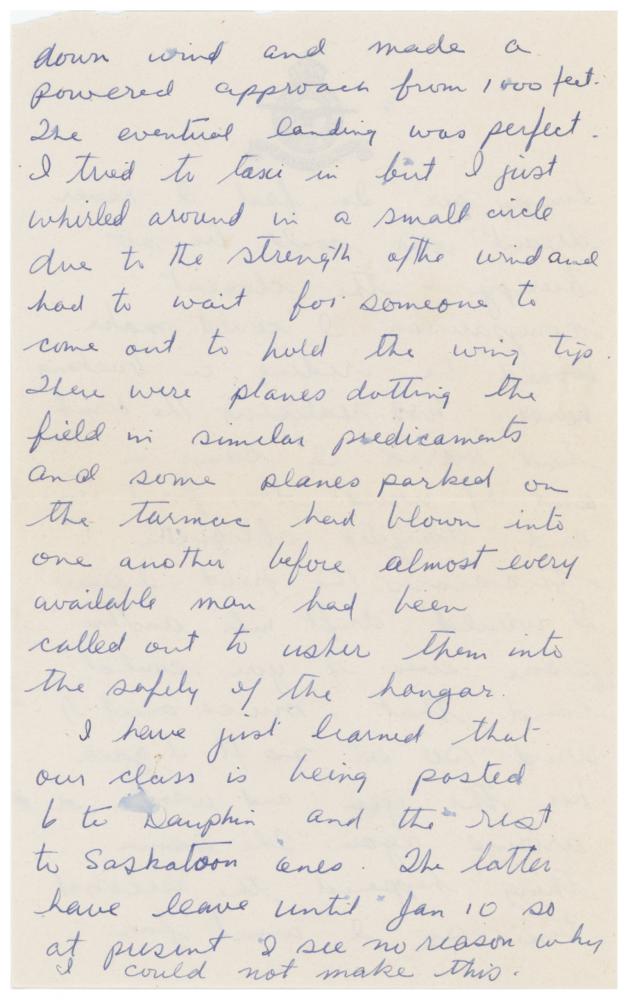 down wind and made a
powered approach from 1000 feet.
The eventual landing was perfect.
I tried to taxi in but I just
whirled around in a small circle
due to the strength of the wind and
had to wait for someone to
come out to hold the wing tips.
There were planes dotting the
field in similar predicaments
and some planes parked on
the tarmac had blown into
one another before almost every
available man had been
called out to usher them into
the safety of the hangar.
I have just learned that
our class is being posted
6 to Dauphin and the rest
to Saskatoon . The latter
have leave until Jan 10 so
at present I see no reason why
I could not make this.